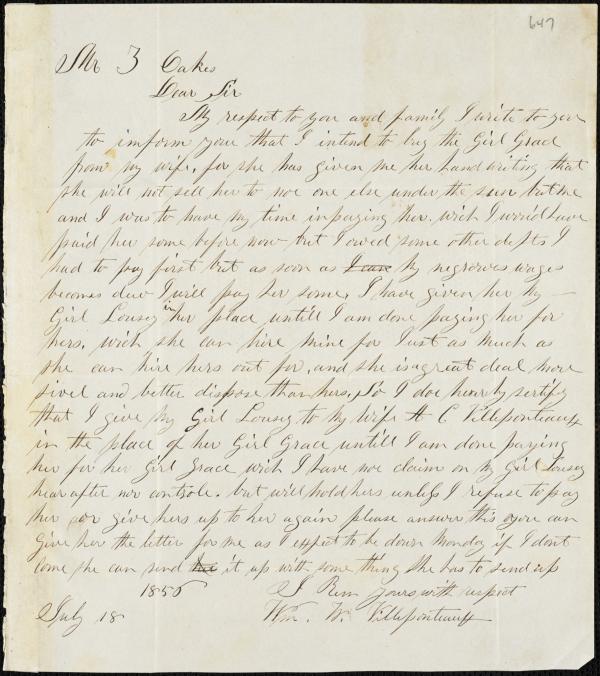 647
Mr Z Oakes
Dear Sir
My respect to you and family I write to you
to imform you that I intend to buy the Girl Grace
from my wife, for she has given me her hand writing that
she will not sell her to noe one else under the sun but me
and I was to have my time in paying her. wich I would have
paid her some before now but I owed some other depts I
had to pay first but as soon as I can My negrowes wages
becomes due I will pay her some, I have given her My
Girl Lousey in her place untill I am done paying her for
hers, wich she can hire mine for Just as much as
she can hire hers out for, and she is a great deal more
sivel and better dispose than hers, So I doe hearby sertify
that I give My Girl Lousey to My Wife A C Villeponteaux
in the place of her Girl Grace untill I am done paying
her for her Girl Grace wich I have noe claim on My Girl Lousey
hear after nor controle. but will hold hers unless I refuse to pay
her or give hers up to her again please answer this & you can
Give her the letter for me as I expect to be down Monday if I dont
come she can send it up with some thing she has to send up
1856 I Rem yours with respect
July 18 Wm. W. Villeponteaux